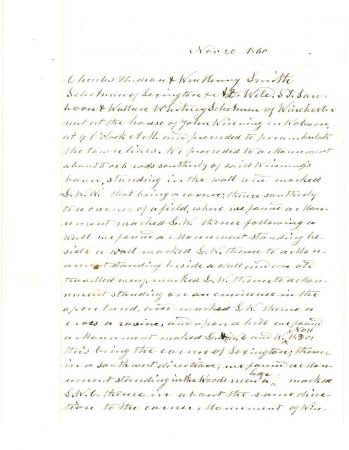 Nov 20 1860
Charles Hudson & Winthrop Smith
Selectmen of Lexington & A. D. Weld, S. T. San-
born & Wallace Whitney Selectmen of Winchester
met at the house of John Winning in Woburn
at 9 O'Clock A.M. and proceeded to perambulate
the town lines. We proceeded to a Monument
about rods southerly of said Winning's
barn, standing in the wall and marked
L. W. W. that being a corner, thence southerly
to a corner of a field, where we found a Mon-
ument marked L. W. thence following a
wall we found a Monument standing be-
side a wall marked L. W. thence to a Mon-
ument standing beside a wall and
travelled way, marked L. W. thence to a Mon-
ument standing on an eminence in the
open land, marked L. W. thence
across a ravine, and upon a hill we found
a Monument marked L. and W. Nov
this being the corner of Lexington, thence
in a south west direction, we found a Mon-
ument standing in the Woods near a marked
L. W. thence in about the same direc-
tion to the corner Monument of Win-